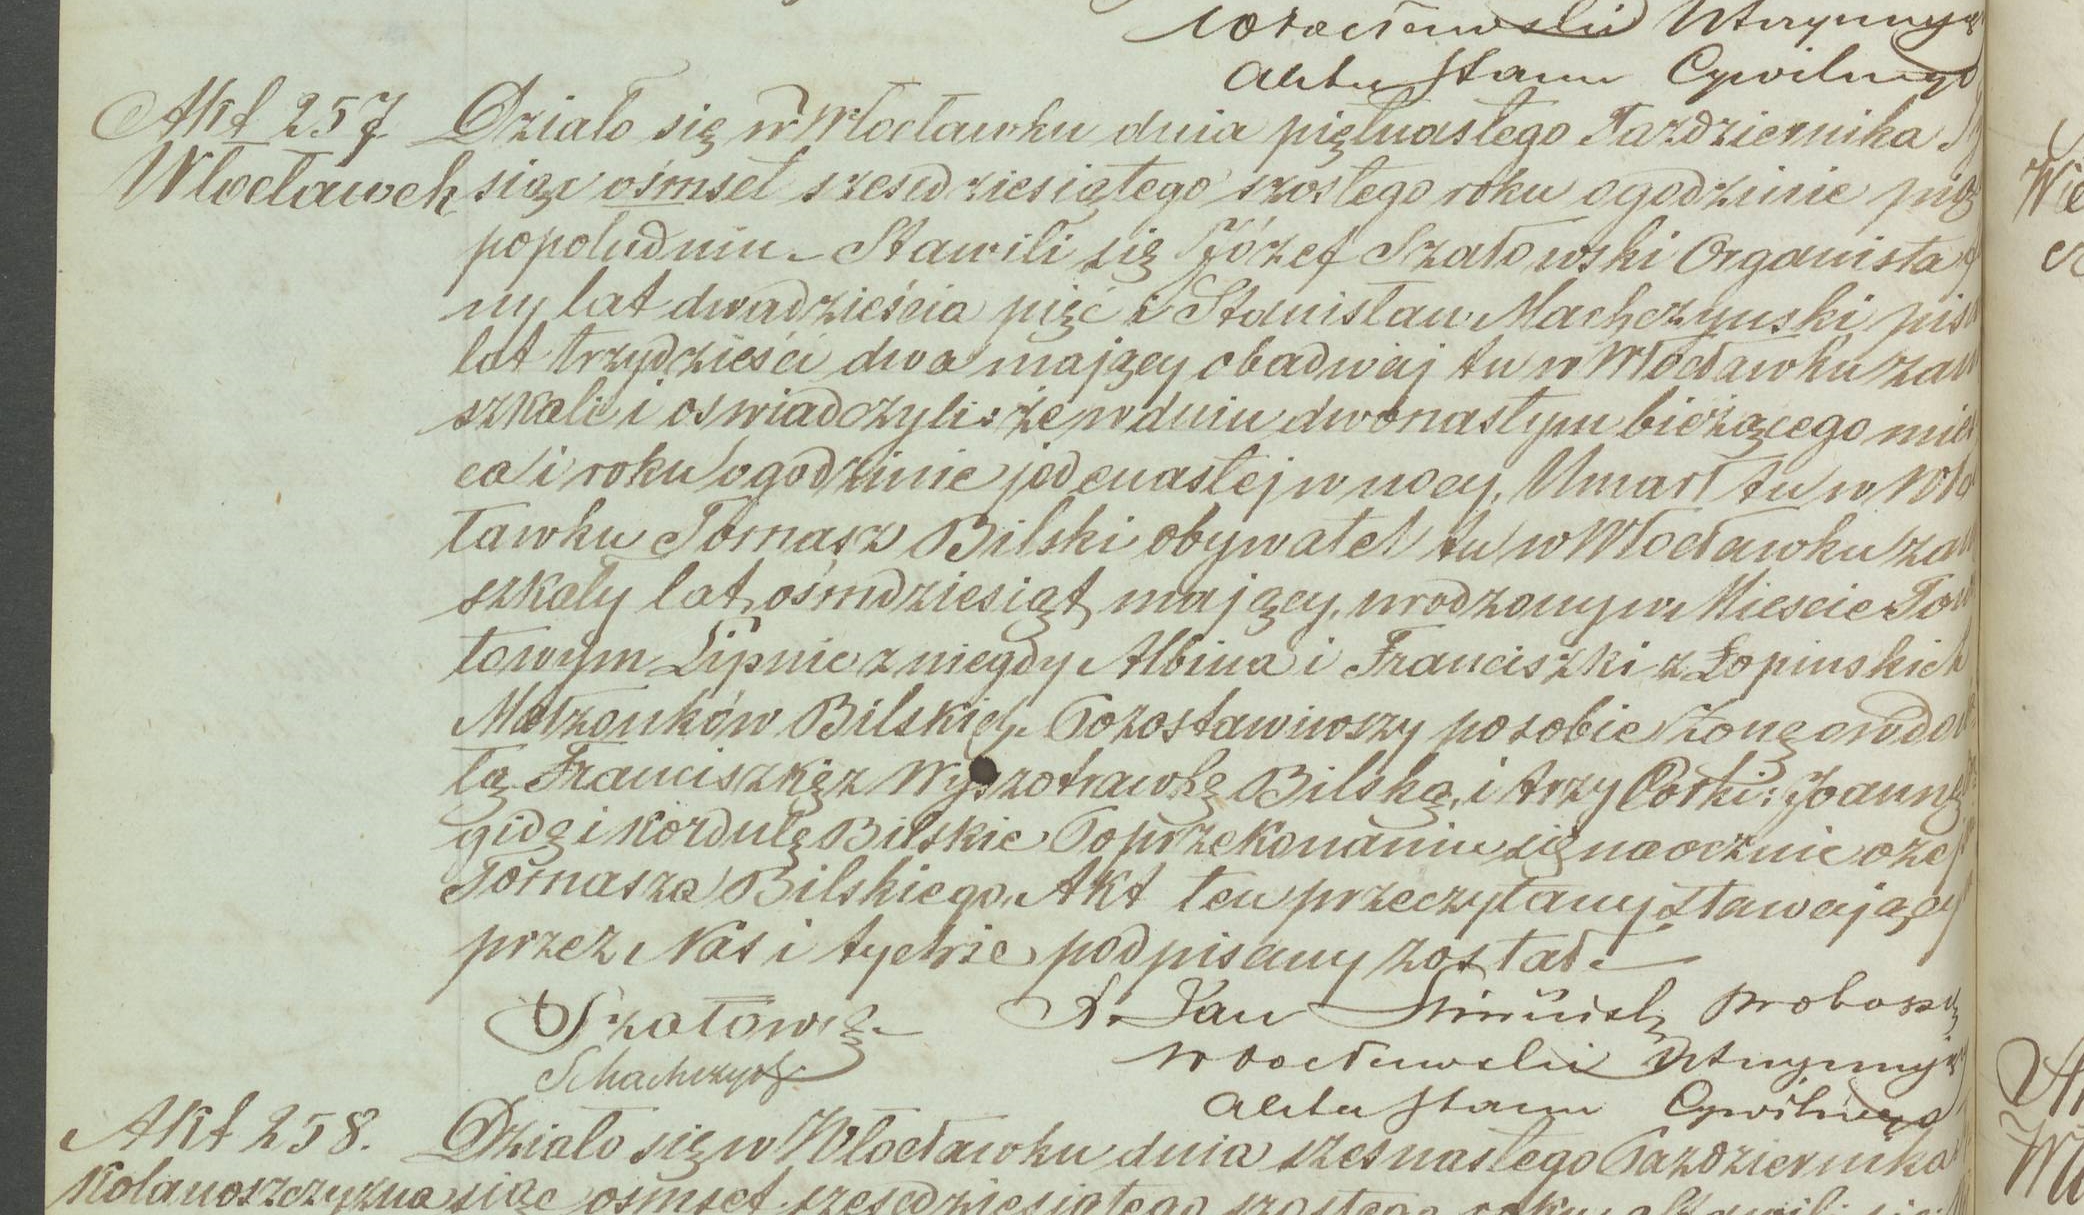 Włocławski Utrzymując
Akta Stanu Cywilnego
Akt 257
Włocławek
Działo się w Włocławku dnia piętnastego Października Ty
siąc ośmset szesedziesiątego szostego roku ogodzinie pią
popołudniu. Stawili się Józef Szałowski Organista
ny lat dwadzieścia pięć i Stanisław Machczyński pis
lat trzydzieści dwa mający obadwaj tu w Włocławku zam
szkali i oswiadczyli: że wdniu dwonastym bieżącego mies
ca i roku ogodzinie jedenastej w nocy, Umarł tu w Wło
ławku Tomasz Bilski obywatel tu w Włocławku zam
szkały lat ośmdziesiąt mający, urodzony w Miescie Pow
towym Lipnie z niegdy Albina i Franciszki z Łopinskich
Małżonków Bilskich. Pozostawiwszy posobie żonę owdow
łą Franciszkę z Wyszotrawkę Bilską, i trzy Córki: Joannę
gidę i Kordulę Bilskie Poprzekonaniu się naocznie oze
Tomasza Bilskiego, Akt ten przeczytany Stawający
przez Nas i tychże podpisany został.
Szałowski
SMachczyński
X. Jan proboszcz
Włocławski Utrzymując
Akta Stanu Cywilnego
Akt 258.
Kolanoszczyzna
Działo się w Włocławku dnia szesnastego Października
siąc osmset szesedziesiątego szostego roku